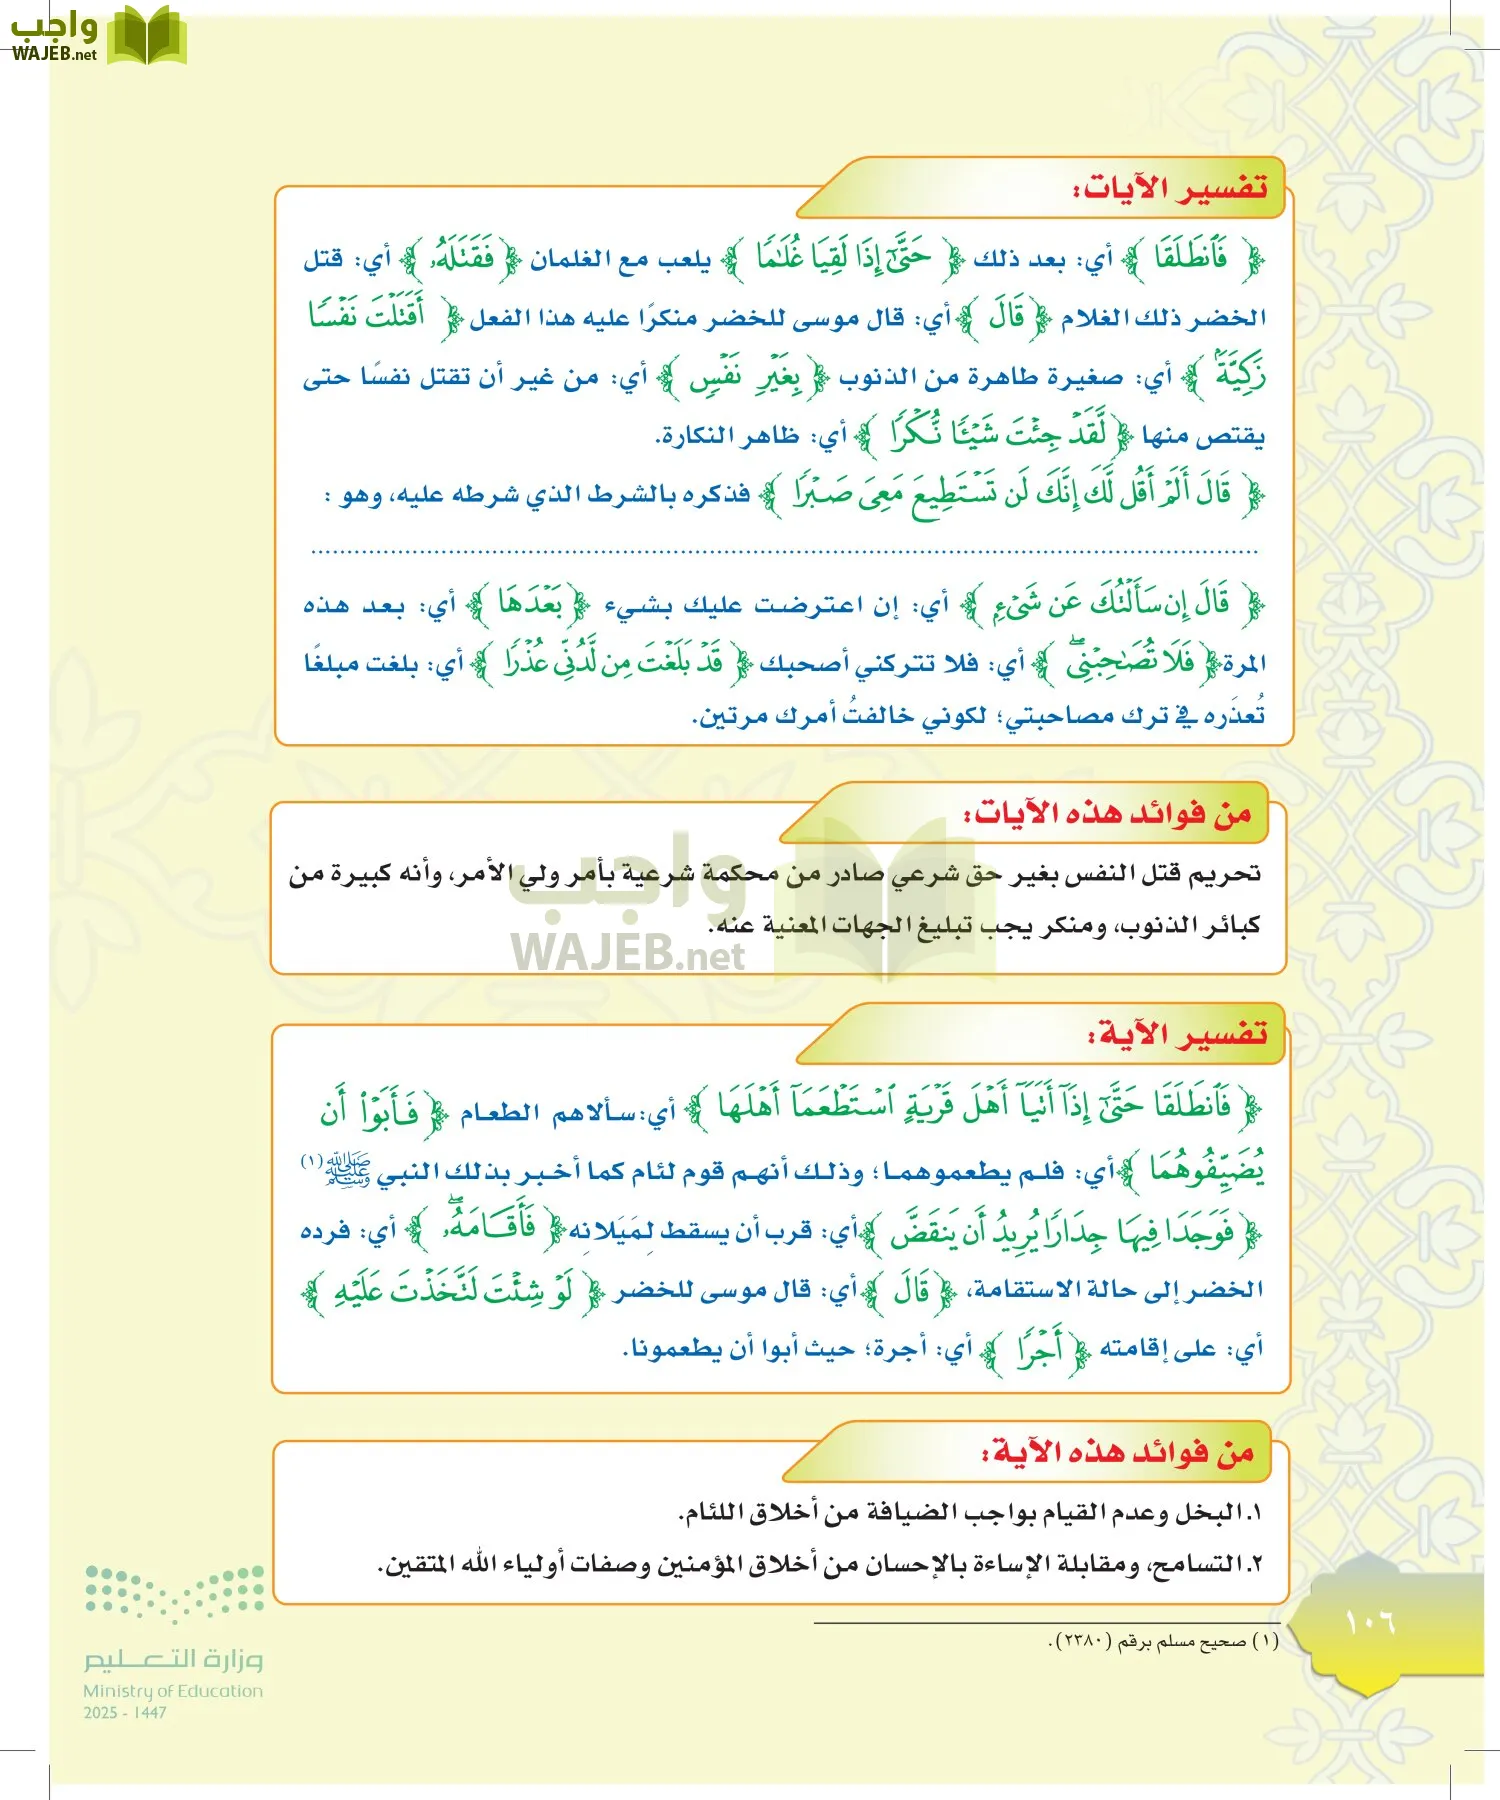 واجب
WAJEB.net
تفسير الآيات:
﴿ فَٱنطَلَقَا ﴾ أي: بعد ذلك ﴿ حَتَّىٰٓ إِذَا لَقِيَا غُلَٰمٗا ﴾ يلعب مع الغلمان ﴿ فَقَتَلَهُۥ ﴾ أي: قتل
الخضر ذلك الغلام ﴿ قَالَ ﴾ أي: قال موسى للخضر منكرًا عليه هذا الفعل ﴿ أَقَتَلۡتَ نَفۡسٗا
زَكِيَّةَۢ ﴾ أي: صغيرة طاهرة من الذنوب ﴿ بِغَيۡرِ نَفۡسٖ ﴾ أي: من غير أن تقتل نفسًا حتى
يقتص منها ﴿ لَّقَدۡ جِئۡتَ شَيۡـٔٗا نُّكۡرٗا ﴾ أي: ظاهر النكارة.
﴿ قَالَ أَلَمۡ أَقُل لَّكَ إِنَّكَ لَن تَسۡتَطِيعَ مَعِيَ صَبۡرٗا ﴾ فذكره بالشرط الذي شرطه عليه، وهو :
................................................................................
﴿ قَالَ إِن سَأَلۡتُكَ عَن شَيۡءِۭ ﴾ أي: إن اعترضت عليك بشيء ﴿ بَعۡدَهَا ﴾ أي: بعد هذه
المرة ﴿ فَلَا تُصَٰحِبۡنِيۖ ﴾ أي: فلا تتركني أصحبك ﴿ قَدۡ بَلَغۡتَ مِن لَّدُنِّي عُذۡرٗا ﴾ أي: بلغت مبلغًا
تُعذَره في ترك مصاحبتي؛ لكوني خالفتُ أمرك مرتين.
من فوائد هذه الآيات:
تحريم قتل النفس بغير حق شرعي صادر من محكمة شرعية بأمر ولي الأمر، وأنه كبيرة من
كبائر الذنوب، ومنكر يجب تبليغ الجهات المعنية عنه.
واجب
WAJEB.net
تفسير الآية:
﴿ فَٱنطَلَقَا حَتَّىٰٓ إِذَآ أَتَيَآ أَهۡلَ قَرۡيَةٍ ٱسۡتَطۡعَمَآ أَهۡلَهَا ﴾ أي: سألاهم الطعام ﴿ فَأَبَوۡاْ أَن
يُضَيِّفُوهُمَا ﴾ أي: فلم يطعموهما؛ وذلك أنهم قوم لئام كما أخبر بذلك النبي ﷺ (١)
﴿ فَوَجَدَا فِيهَا جِدَارٗا يُرِيدُ أَن يَنقَضَّ ﴾ أي: قرب أن يسقط لِمَيَلانِه ﴿ فَأَقَامَهُۥۖ ﴾ أي: فرده
الخضر إلى حالة الاستقامة، ﴿ قَالَ ﴾ أي: قال موسى للخضر ﴿ لَوۡ شِئۡتَ لَتَّخَذۡتَ عَلَيۡهِ ﴾
أي: على إقامته ﴿ أَجۡرٗا ﴾ أي: أجرة؛ حيث أبوا أن يطعمونا.
من فوائد هذه الآية:
١. البخل وعدم القيام بواجب الضيافة من أخلاق اللئام.
٢. التسامح، ومقابلة الإساءة بالإحسان من أخلاق المؤمنين وصفات أولياء الله المتقين.
(١) صحيح مسلم برقم (٢٣٨٠).
١٠٦
وزارة التعليم
Ministry of Education
2025 - 1447